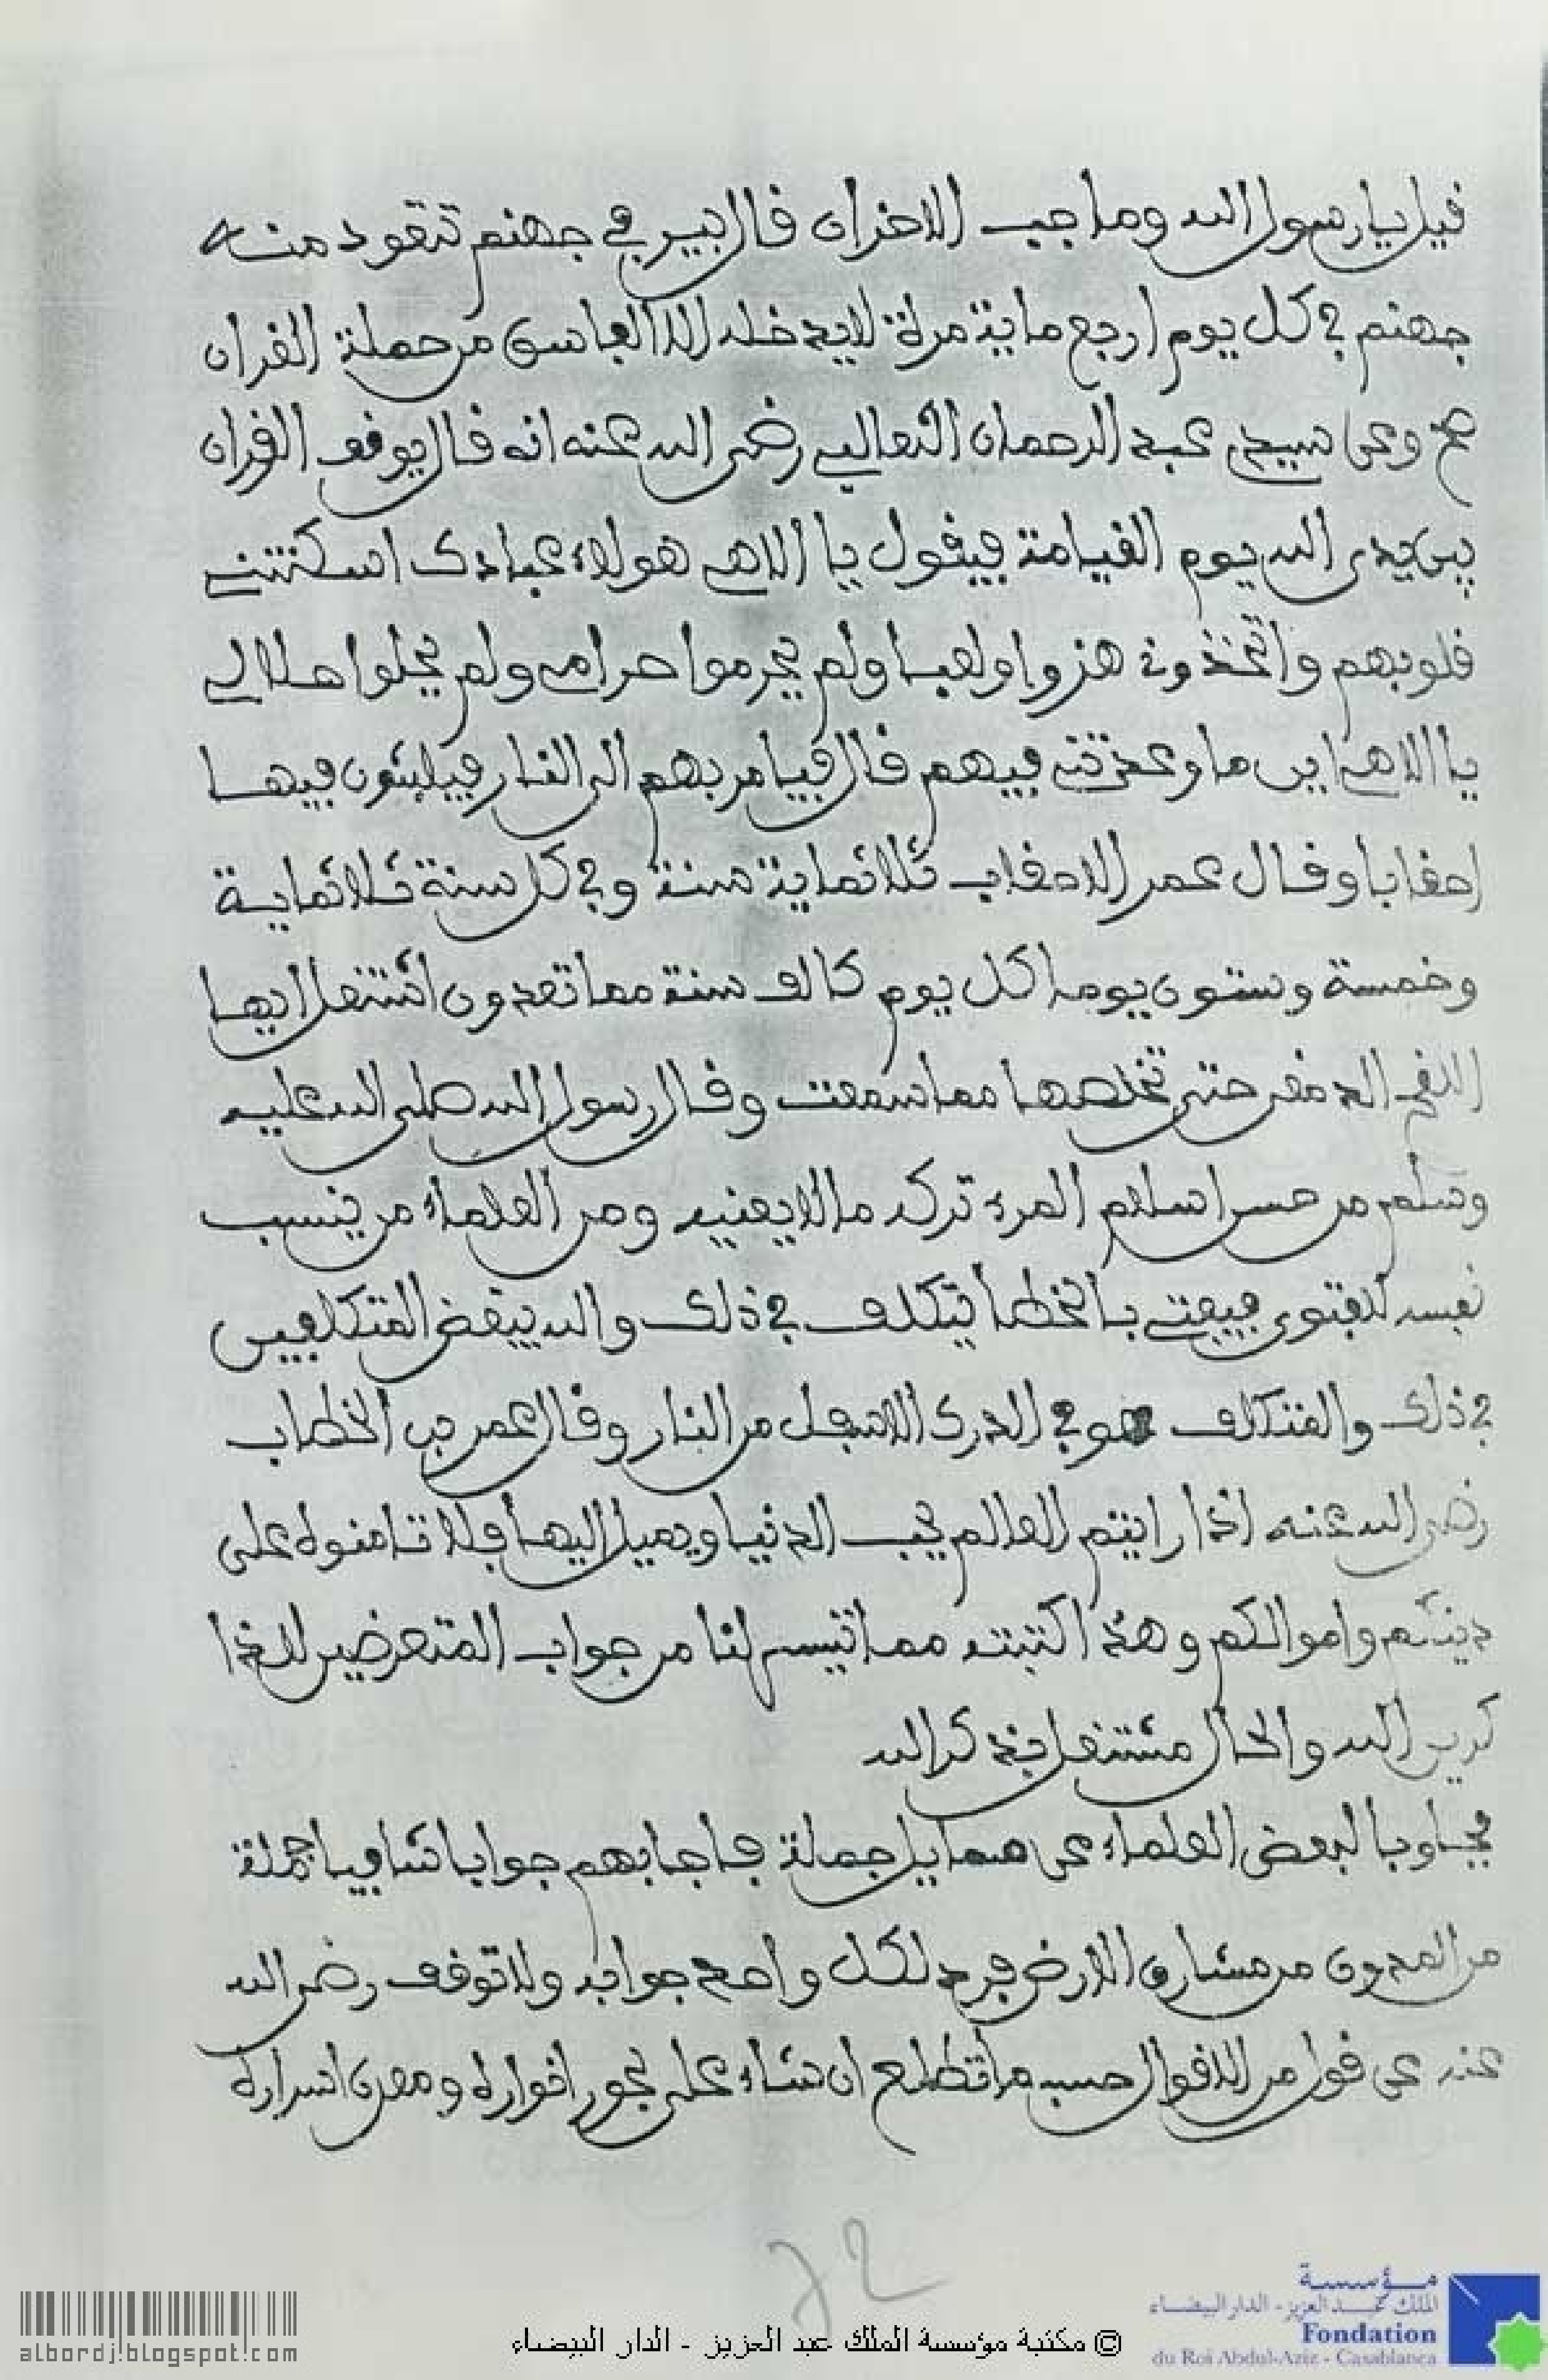 فيل يا رسول الله وما جب الاخزان فال بير في جهنم تتعود منه
جهنم في كل يوم اربع ماية مرة لايدخله الا الفاسق من حملة الفران
صح وعن سيدي عبد الرحمان الثعالبي رضى الله عنه انه فال يوفف الفران
بين يدى الله يوم الفيامة فيفول يا الاهي هولاء عبادك اسكنتني
فلوبهم واتخذوني هزوا ولعبا ولم يحرموا حرامي ولم يحلوا حلالي
يا الاهي اين ما وعذتني فيهم فال فيامر بهم الى النار فيلبثون فيها
احفابا وفال عمر الاحفاب ثلاثماية سنة وفي كل سنة ثلاثماية
وخمسة وستون يوما كل يوم كالف سنة مما تعدون اشتغل ايها
الفح حتى تخلصها مما سمعت وفال رسول الله صلى الله عليه
وسلم من حسن اسلام المرء تركه ما لا يعنيه ومن العلماء من ينسب
نفسه للفتوى فيفتي بالخطأ يتكلف في ذلك والله يبغض المتكلفين
في ذلك والمتكلف هو في الدرك الاسفل من النار وفال عمر بن الخطاب
رضى الله عنه اذا رايتم العالم يحب الدنيا ويميل اليها فلا تامنوه على
دينكم واموالكم وهذا كتبته مما تيسر لنا من جواب المتعرضين للذا
كرين الله والحال مشتغل بذكر الله
مجاوبا لبعض العلماء عن مسايل جملة فاجابهم جوابا شافيا جملة
من المدون من مشارق الارض فرد لكل واحد جوابه ولا توفف رضى الله
عنه عن فول من الافوال حسب ما تطلع ان شاء على بحور انواره ومعدن اسراره
72
© مكتبة مؤسسة الملك عبد العزيز - الدار البيضاء
albordj.blogspot.com
مؤسسة
الملك عبد العزيز - الدار البيضاء
Fondation
du Roi Abdul-Aziz - Casablanca